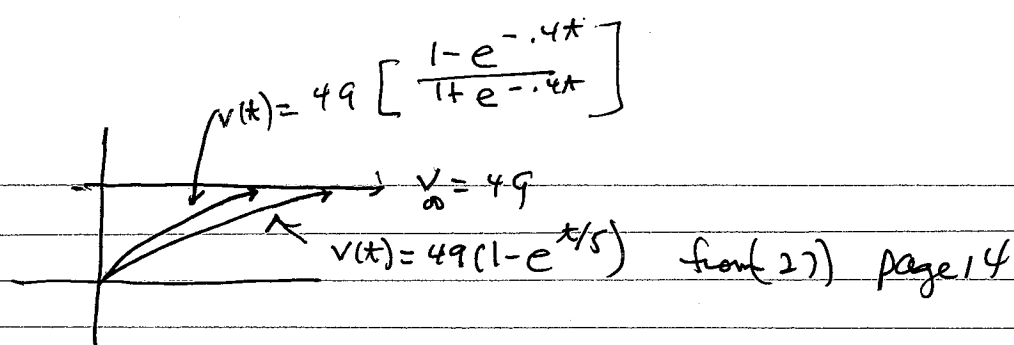 v(t) = 49 [ (1 - e^{-.4t}) / (1 + e^{-.4t}) ]
v_∞ = 49
v(t) = 49(1 - e^{t/5}) from (27) page 14